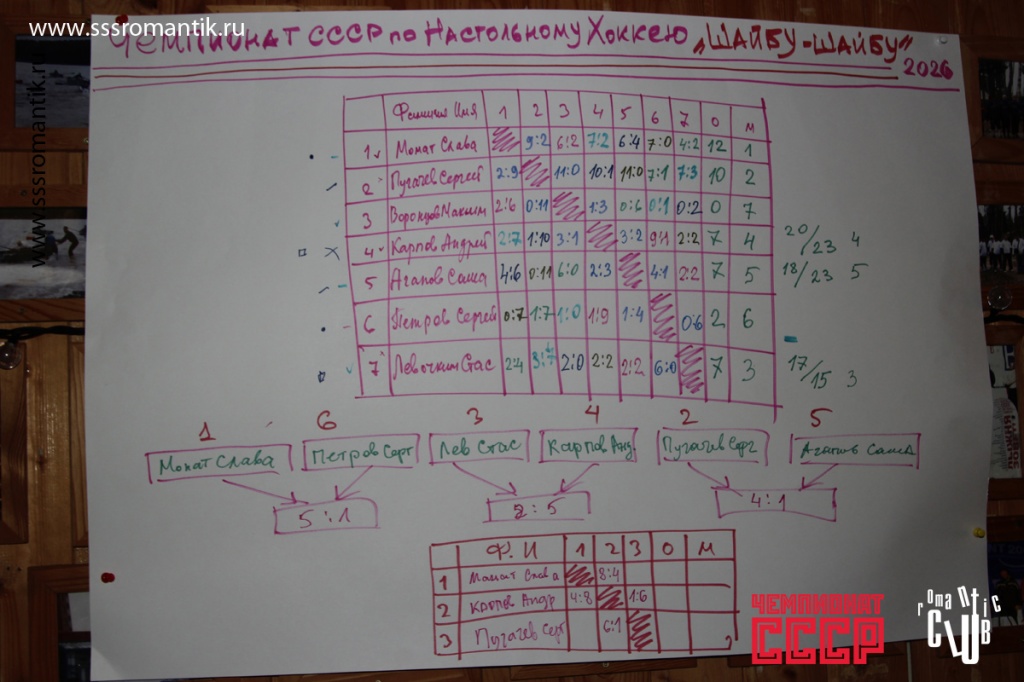 www.sssromantik.ru
www.sssromantik.ru
Чемпионат СССР по Настольному Хоккею „Шайбу-Шайбу"
2026
Фамилия Имя 1 2 3 4 5 6 7 О М
1 Монат Слава 9:2 6:2 7:2 6:4 7:0 4:2 12 1
2 Пугачев Сергей 2:9 11:0 10:1 11:0 7:1 7:3 10 2
3 Воронцов Максим 2:6 0:11 1:3 0:6 0:1 0:2 0 7
4 Карпов Андрей 2:7 1:10 3:1 3:2 9:1 2:2 7 4 20/23 4
5 Агапов Саша 4:6 0:11 6:0 2:3 4:1 2:2 7 5 18/23 5
6 Петров Сергей 0:7 1:7 1:0 1:9 1:4 0:6 2 6
7 Левочкин Стас 2:4 3:7 2:0 2:2 2:2 6:0 7 3 17/15 3
1 6 3 4 2 5
Монат Слава Петров Серг Лев Стас Карпов Анд. Пугачев Серг Агапов Саша
5:1 2:5 4:1
Ф.И 1 2 3 О М
1 Монат Слава 8:4
2 Карпов Андр 4:8 1:6
3 Пугачев Серг 6:1
ЧЕМПИОНАТ
СССР
romantic
CLUB